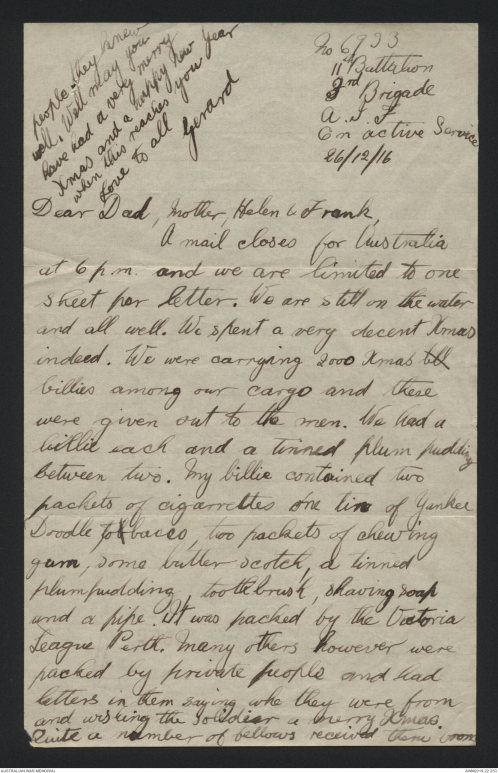 No 6733
11th Battalion
3rd Brigade
A.I.F
On active Service
26/12/16
Dear Dad, Mother, Helen & Frank,
A mail closes for Australia
at 6 p.m. and we are limited to one
sheet per letter. We are still on the water
and all well. We spent a very decent Xmas
indeed. We were carrying 2000 Xmas bill
billies among our cargo and these
were given out to the men. We had a
billie each and a tinned plum pudding
between two. My billie contained two
packets of cigarrettes one tin of Yankee
Doodle tobacco, two packets of chewing
gum, some butter scotch, a tinned
plumpudding, toothbrush, shaving soap
and a pipe. It was packed by the Victoria
League Perth. Many others however were
packed by private people and had
letters in them saying who they were from
and wishing the soldier a merry Xmas.
Quite a number of fellows received them from
people they knew
well. Well may you
have had a very merry
Xmas and a happy New Year
when this reaches you
Love to all
Gerard
AUSTRALIAN WAR MEMORIAL